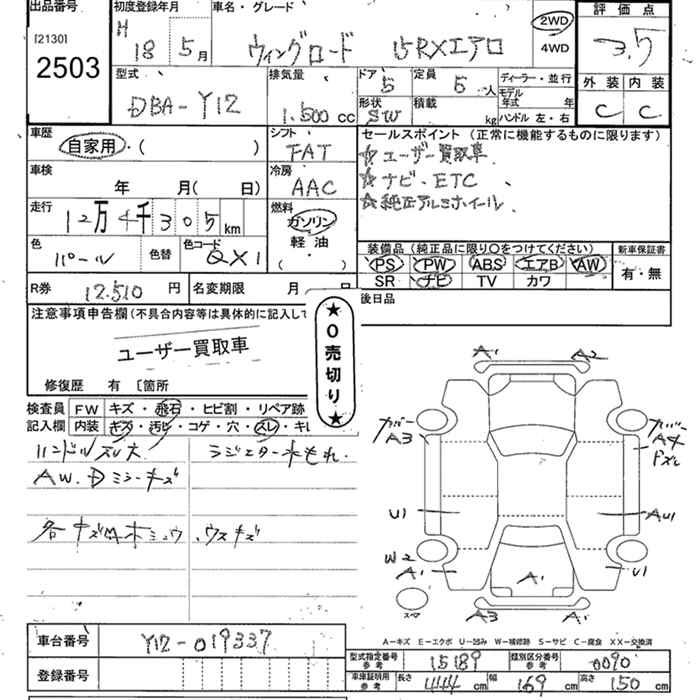 出品番号 初度登録年月 車名・グレード 評価点
[2130] H 18 5月 ウィングロード 15RXエアロ 2WD 4WD 3.5
2503
型式 排気量 ドア 5 定員 5人 ディーラー・並行 外装 内装
DBA-Y12 1.500cc 形状 SW 積載 kg モデル年式 年 ハンドル 左・右 C C
車歴 自家用・( ) シフト FAT セールスポイント (正常に機能するものに限ります)
☆ユーザー買取車
車検 年 月( 日) 冷房 AAC ☆ナビ、ETC
☆純正アルミホイール
走行 12万4千305km 燃料 ガソリン 軽油 ( ・ )
色 パール 色替 色コード QX1 装備品 (純正品に限り○をつけてください) 新車保証書
PS PW ABS エアB AW 有・無
SR ナビ TV カワ
R券 12.510円 名変期限 月 日 後日品
注意事項申告欄 (不具合内容等は具体的に記入して
ユーザー買取車
★0売切り★
修復歴 有 〔箇所
検査員記入欄 FW キズ・飛石・ヒビ割・リペア跡
内装 キズ・汚レ・コゲ・穴・スレ・キレ
ハンドルスレ大 ラジエター水もれ.
AW.Dミラーキズ
各キズ ウスキズ
A1 A2
カバー A3 カバー A4
U1 AU1
W2 A1 U1
A1
スペア A3 A1
A-キズ E-エクボ U-凹み W-補修跡 S-サビ C-腐食 XX-交換済
車台番号 Y12-019337
型式指定番号 参考 15189 類別区分番号 参考 0090
登録番号 車庫証明用 参考 長さ 444cm 幅 169cm 高さ 150cm